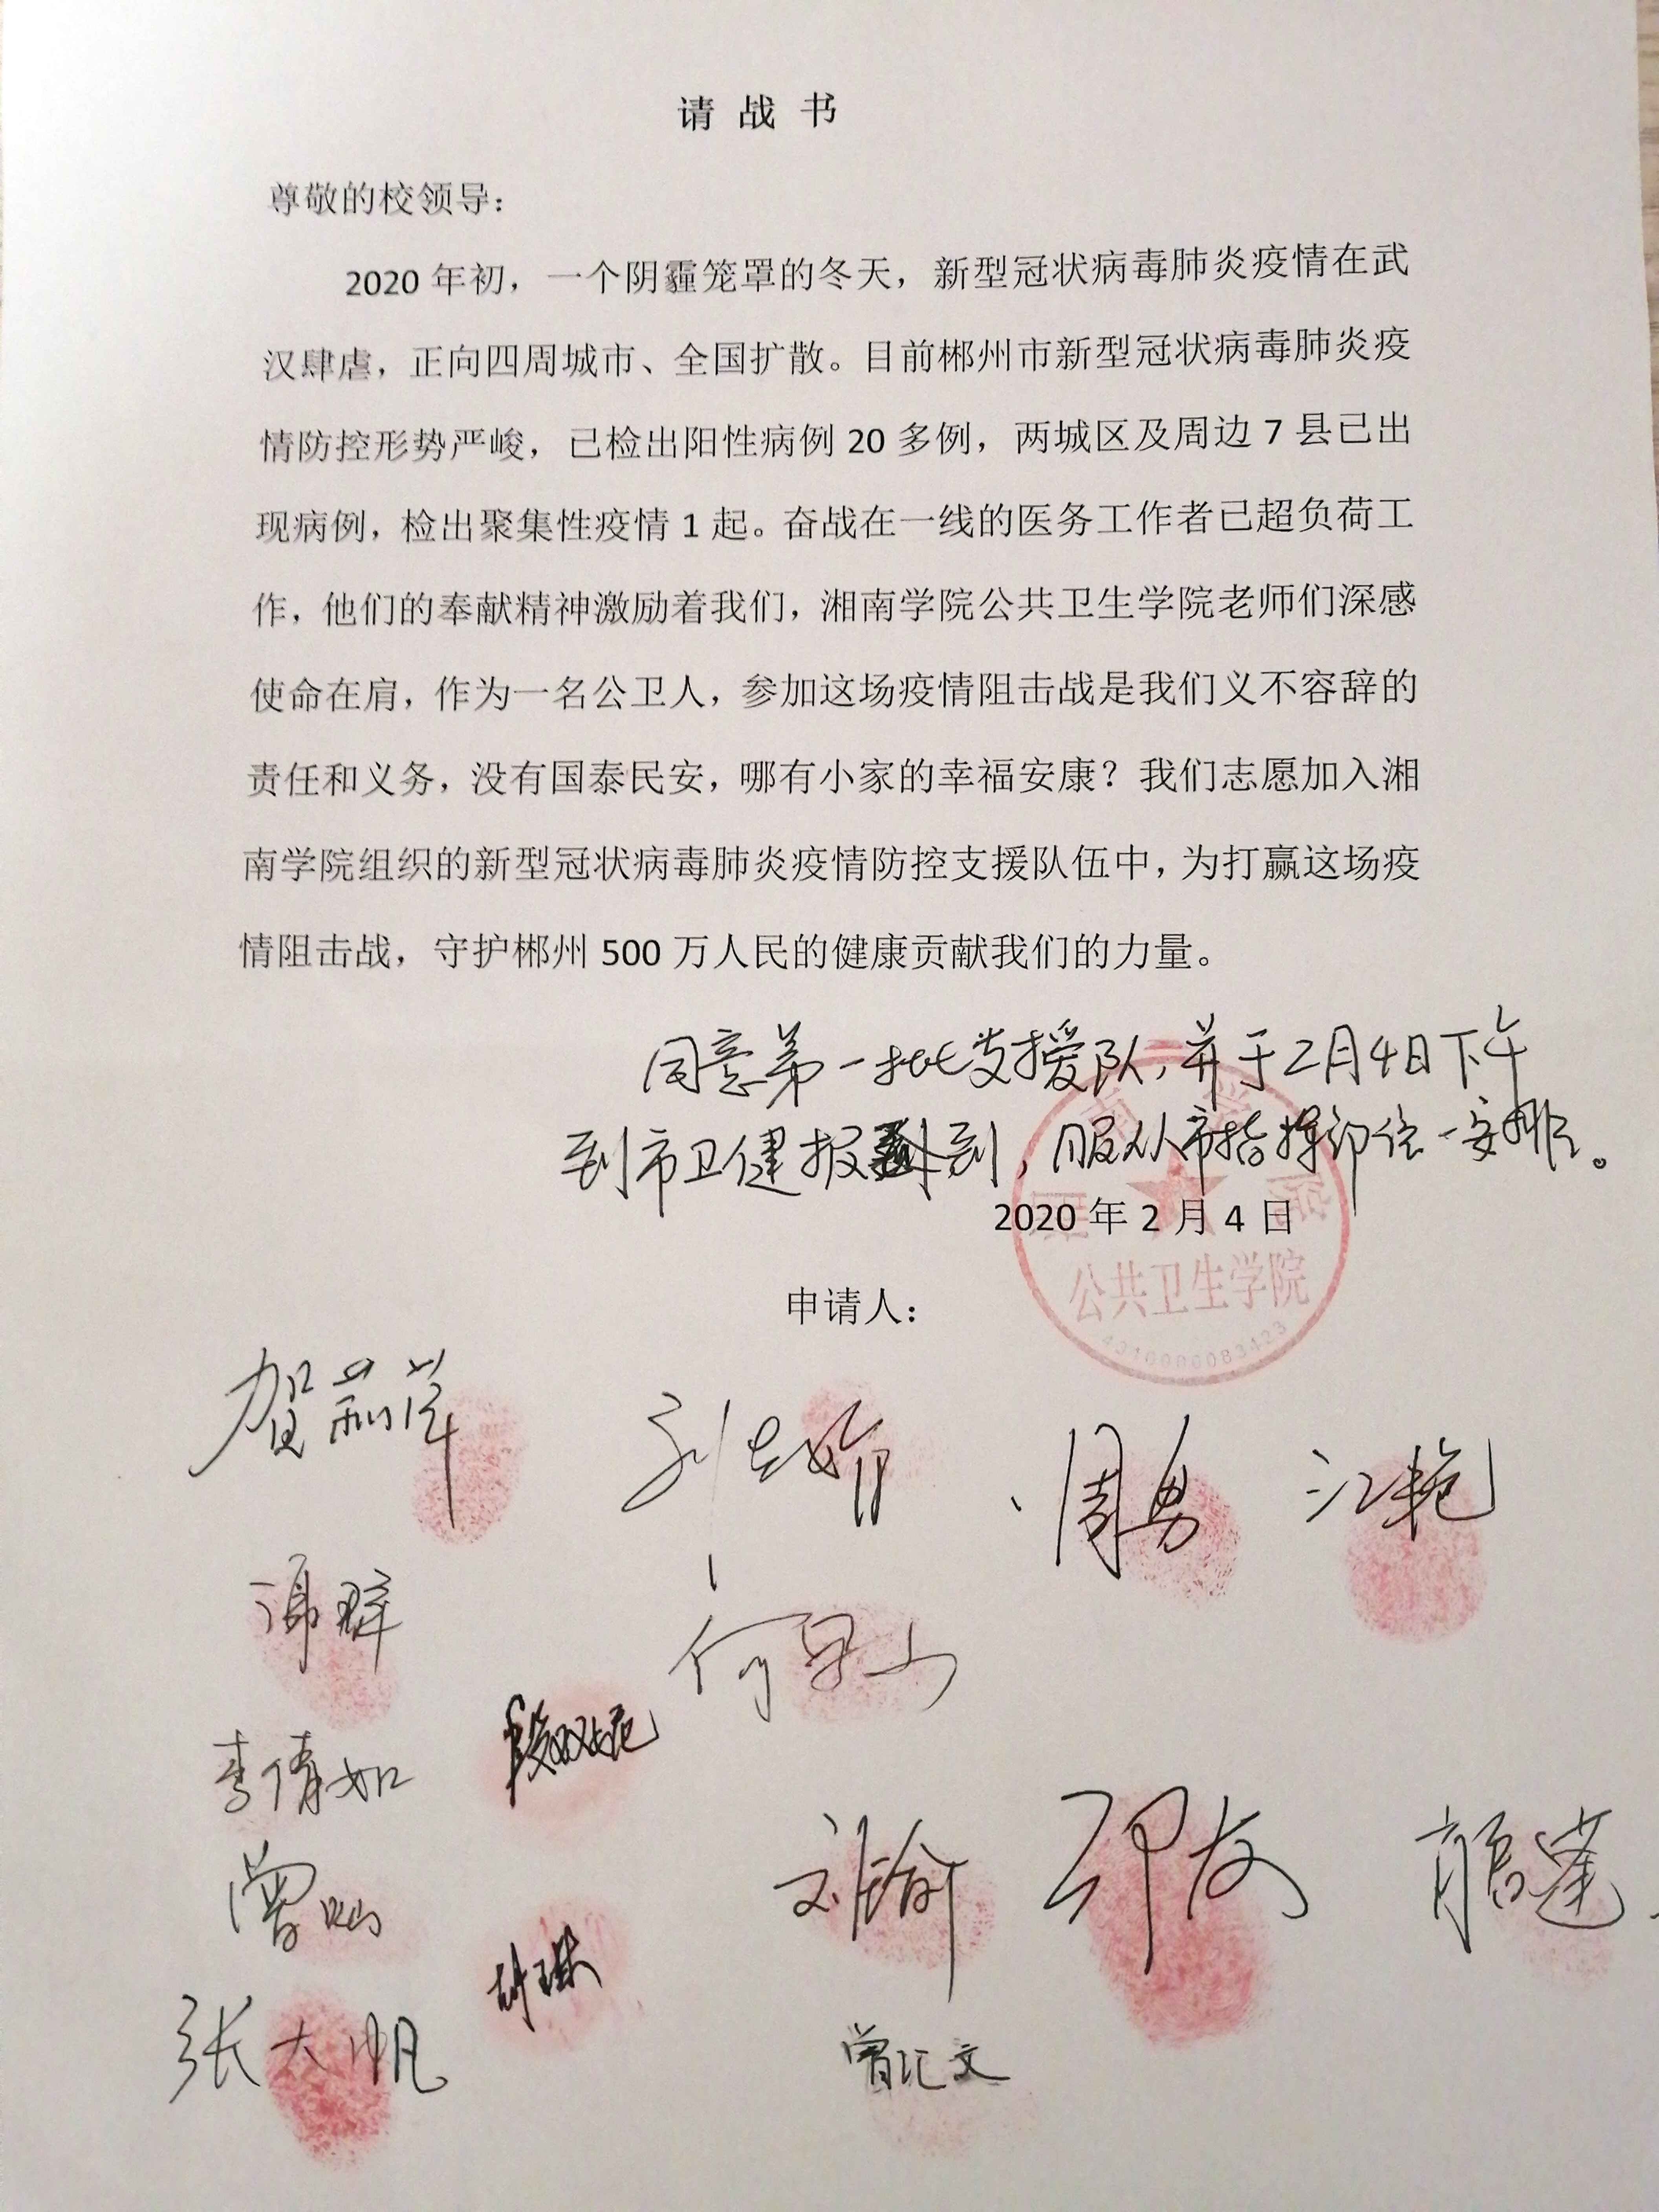 请战书
尊敬的校领导：
2020年初，一个阴霾笼罩的冬天，新型冠状病毒肺炎疫情在武
汉肆虐，正向四周城市、全国扩散。目前郴州市新型冠状病毒肺炎疫
情防控形势严峻，已检出阳性病例20多例，两城区及周边7县已出
现病例，检出聚集性疫情1起。奋战在一线的医务工作者已超负荷工
作，他们的奉献精神激励着我们，湘南学院公共卫生学院老师们深感
使命在肩，作为一名公卫人，参加这场疫情阻击战是我们义不容辞的
责任和义务，没有国泰民安，哪有小家的幸福安康？我们志愿加入湘
南学院组织的新型冠状病毒肺炎疫情防控支援队伍中，为打赢这场疫
情阻击战，守护郴州500万人民的健康贡献我们的力量。
同意第一批支援队，并于2月4日下午
到市卫健报到，服从市指挥部统一安排。
2020年2月4日
公共卫生学院
4310000083423
申请人：
周勇 江艳
李倩如
刘瑜
曾灿
张大帆
胡琳
曾汇文